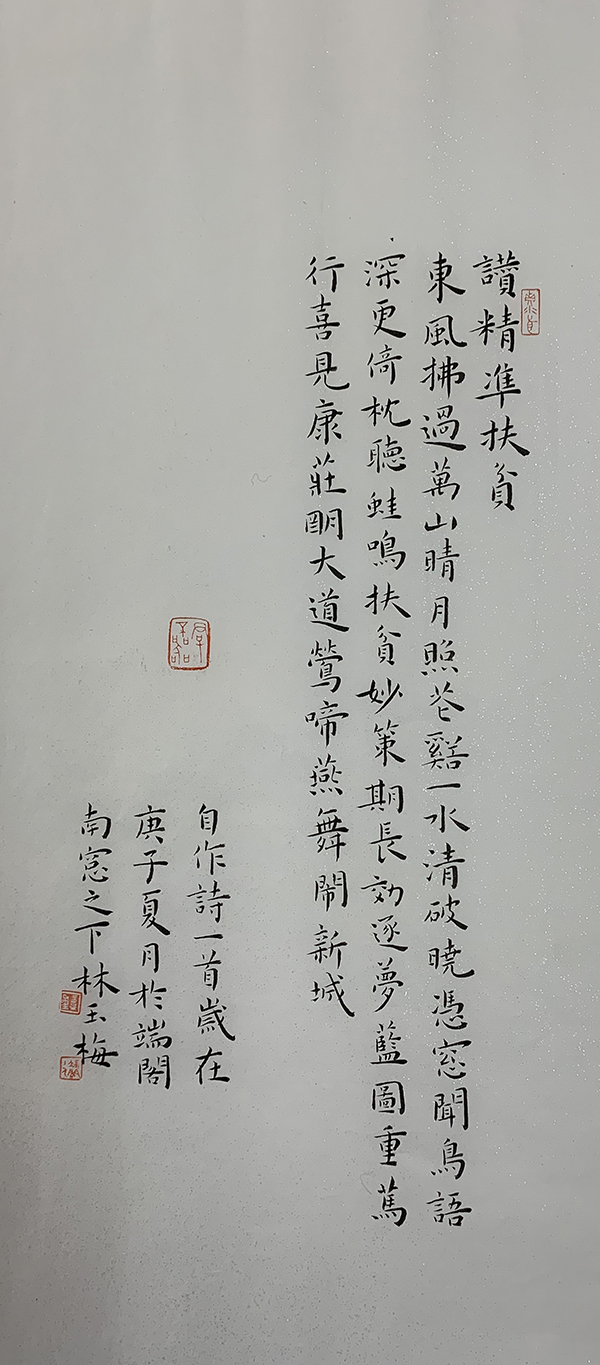 讚精準扶貧
東風拂過萬山晴月照花谿一水清破曉憑窓聞鳥語
深更倚枕聽蛙鳴扶貧妙策期長効逐夢藍圖重篤
行喜見康莊朙大道鶯啼燕舞鬧新城
自作詩一首歲在
庚子夏月於端閣
南窓之下林玉梅